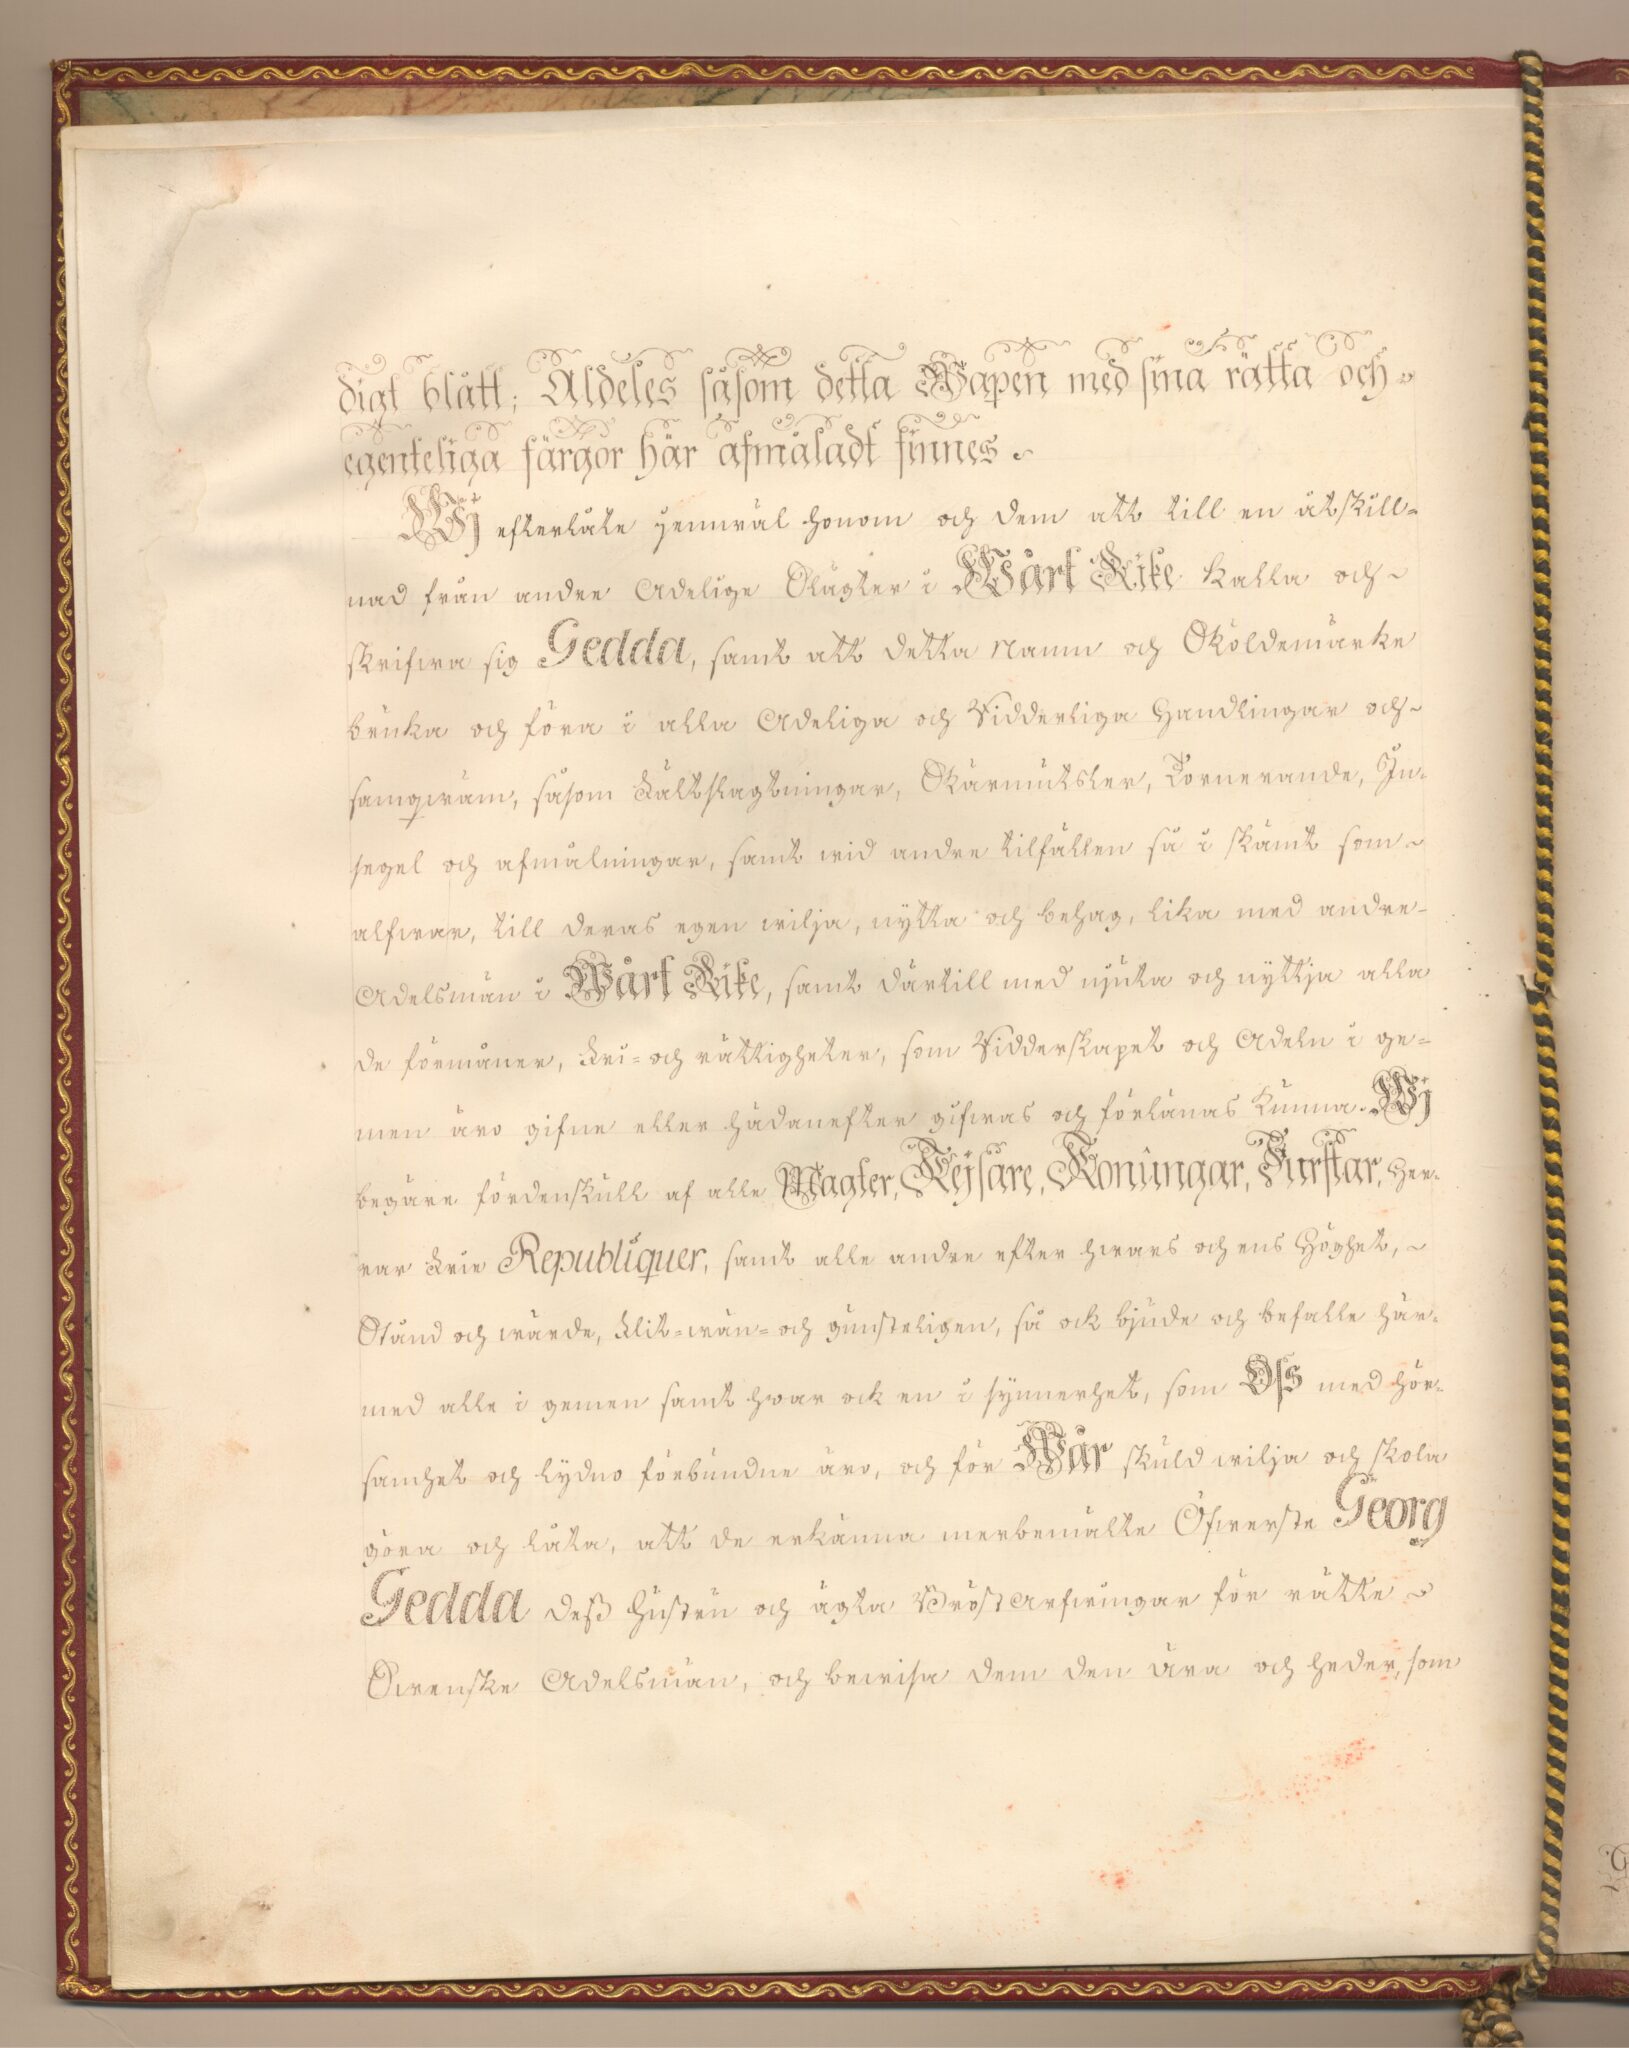 digt blått; Aldeles såsom detta Wapen med sina rätta och
egenteliga färgor här afmåladt finnes.
Wij efterlåte jemwäl honom och dem att till en åtskill-
nad från andre Adelige Slägter i Wårt Rike kalla och
skrifwa sig Gedda, samt att detta Namn och Sköldemärke
bruka och föra i alla Adeliga och Ridderliga Handlingar och
samqwäm, såsom Fältslagtningar, Skärmütsler, Tornerande, In-
segel och afmålningar, samt wid andre tilfällen så i skämt som
alfwar, till deras egen wilja, nytta och behag, lika med andre
Adelsmän i Wårt Rike, samt därtill med njuta och nyttja alla
de förmåner, fri- och rättigheter, som Ridderskapet och Adeln i ge-
men äro gifne eller hädanefter gifwas och förlänas kunna. Wij
begäre fördenskull af alle Magter, Kejsare, Konungar, Furstar, Her-
rar Frie Republiquer, samt alle andre efter hwars och ens Höghet,
Stånd och wärde, flit-wän- och gunsteligen, så ock bjude och befalle här-
med alle i gemen samt hwar ock en i synnerhet, som Oss med hör-
samhet och lydno förbundne äro, och för Wår skuld wilja och skola
göra och låta, att de erkänna merbemälte Öfwerste Georg
Gedda deß hustru och ägta Bröst Arfwingar för rätte
Swenske Adelsmän, och bewisa dem den ära och heder, som